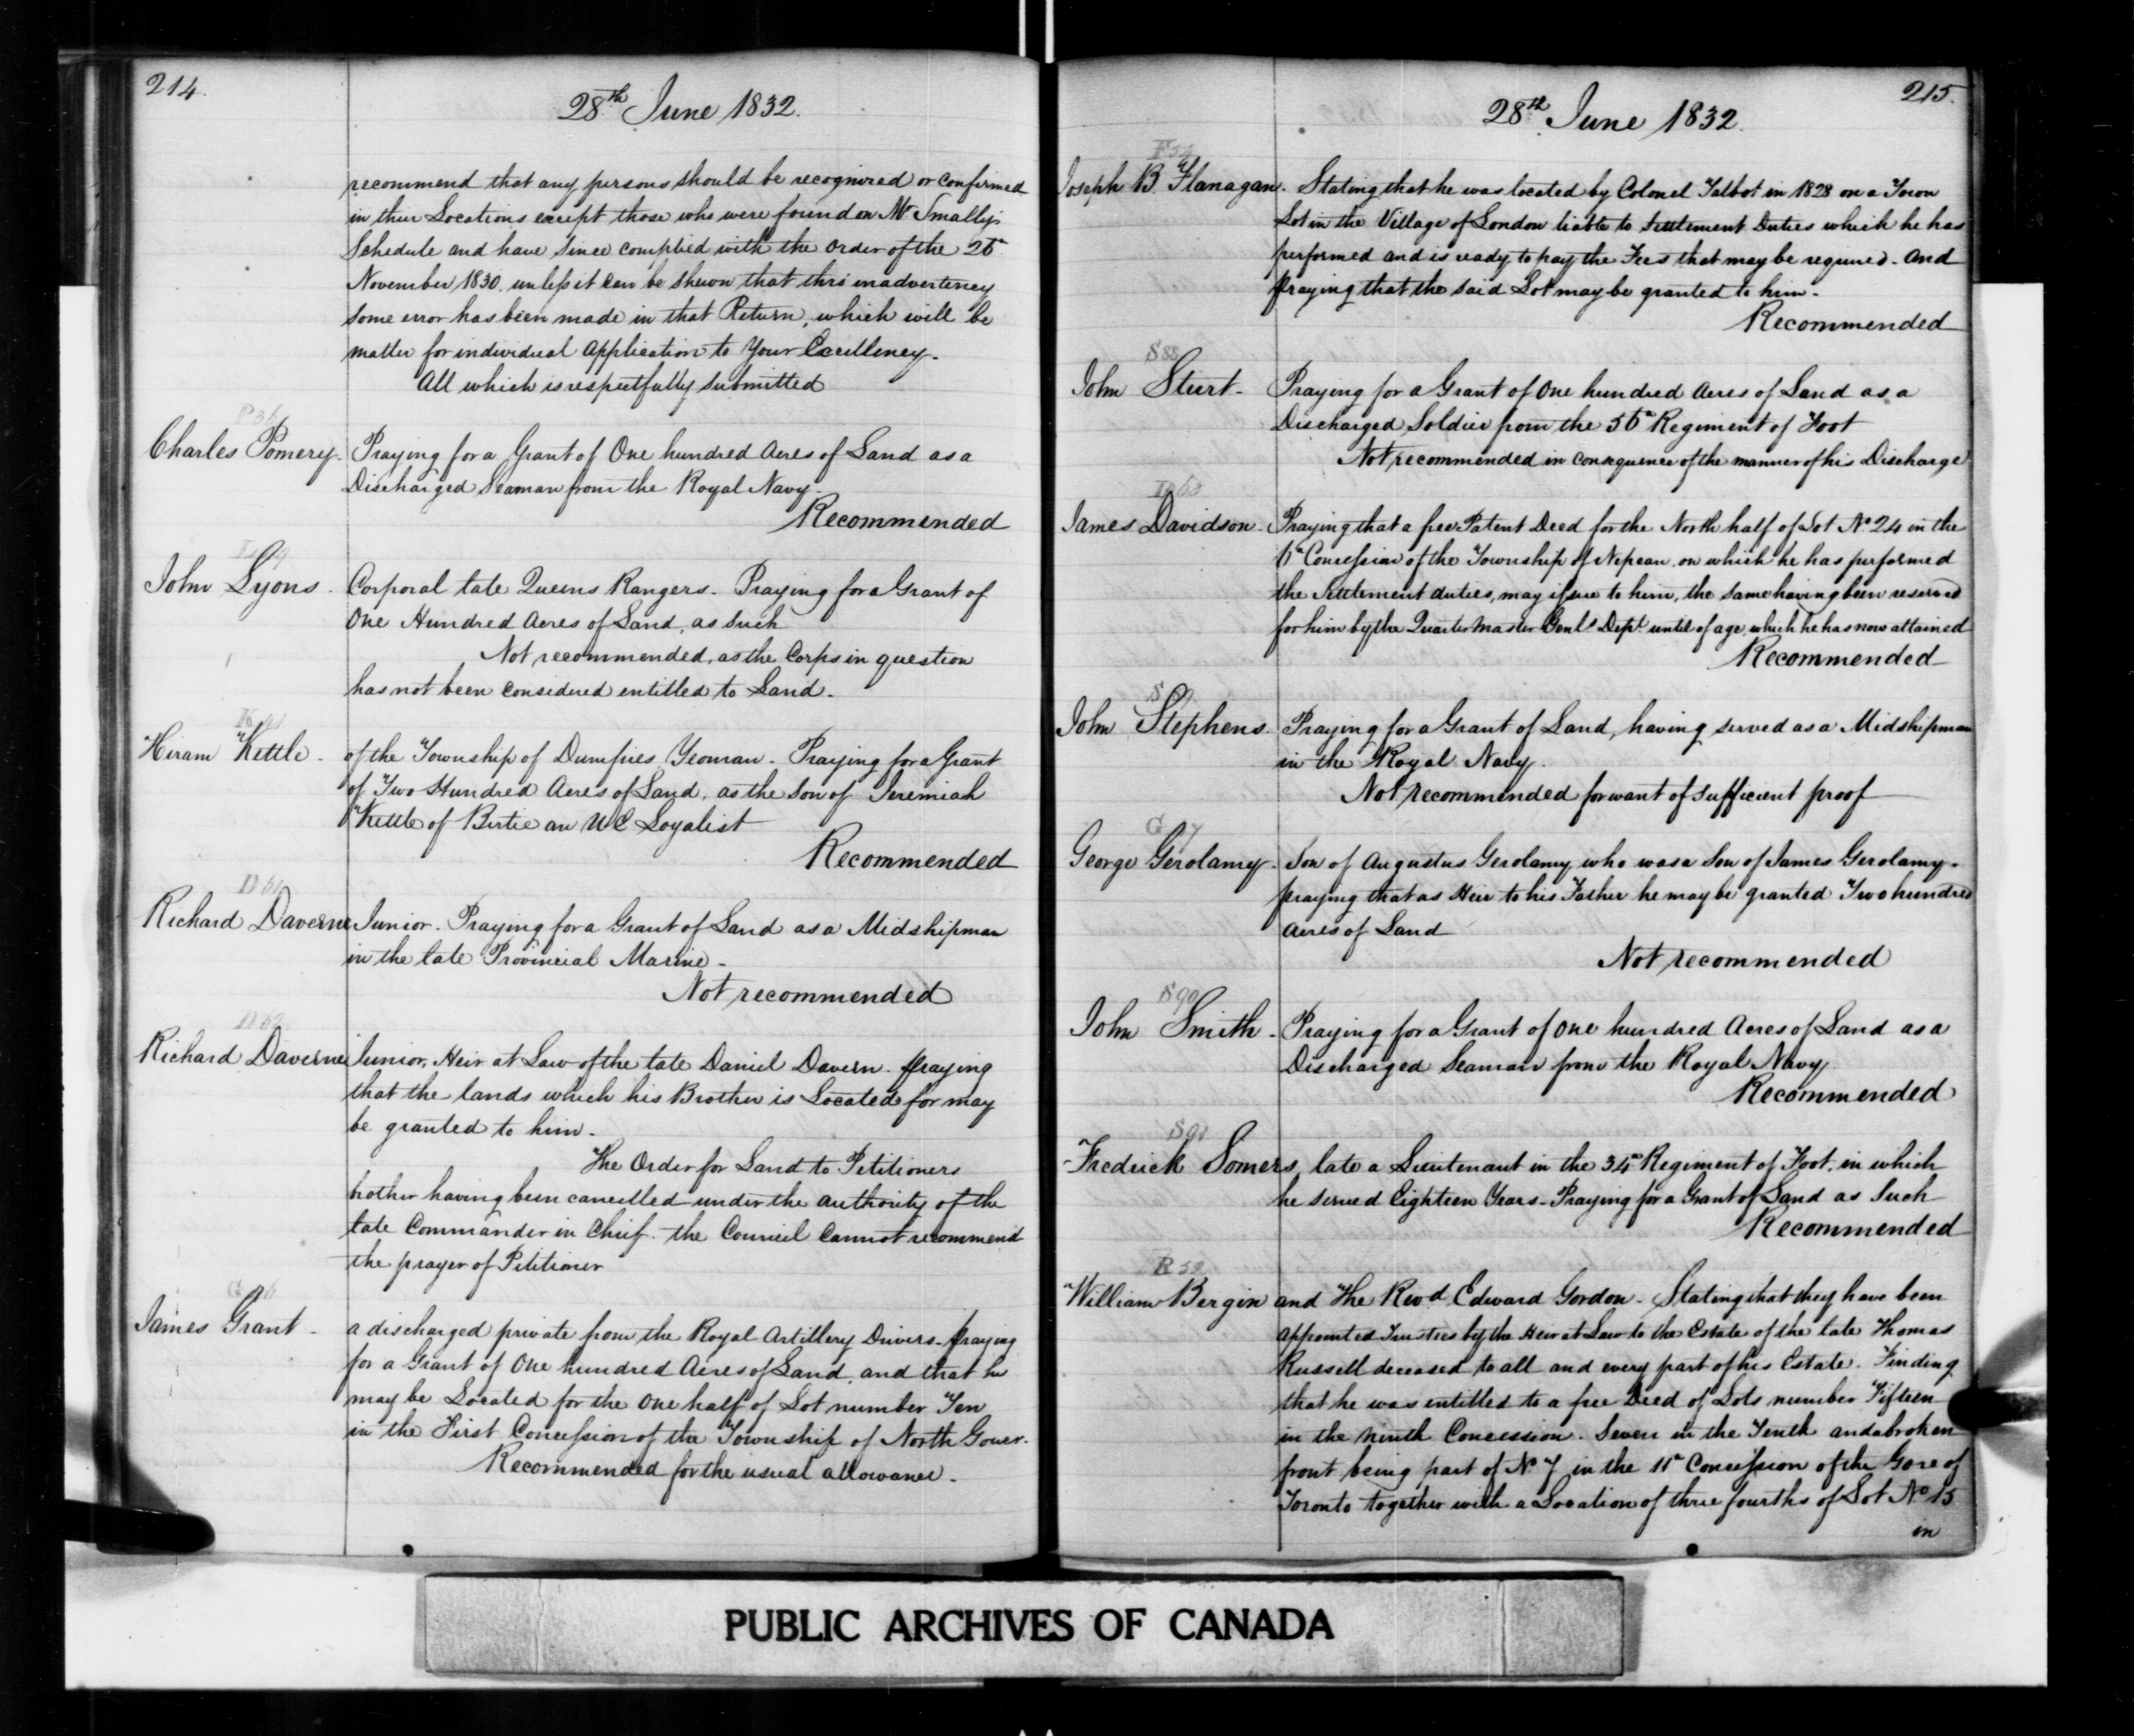 214.
28th June 1832.
recommend that any persons should be recognized or confirmed
in their Locations except those who were found on Mr Smally's
Schedule and have since complied with the order of the 26th
November 1830. unless it can be shewn that thro' inadvertency
some error has been made in that Return, which will be
matter for individual application to Your Excellency.
All which is respectfully submitted
Charles Pomery. Praying for a Grant of One hundred Acres of Land as a
Discharged Seaman from the Royal Navy.
Recommended
John Lyons. Corporal late Queens Rangers. Praying for a Grant of
One Hundred Acres of Land, as such
Not recommended, as the Corps in question
has not been considered entitled to Land.
Hiram Kettle. of the Township of Dumfries Yeoman. Praying for a Grant
of Two Hundred Acres of Land, as the Son of Jeremiah
Kettle of Bertie an UE Loyalist
Recommended
D 61
Richard Daverne Junior. Praying for a Grant of Land as a Midshipman
in the late Provincial Marine.
Not recommended
D 62
Richard Daverne Junior, Heir at Law of the late Daniel Davern. praying
that the lands which his Brother is Located for may
be granted to him.
The Order for Land to Petitioners
brother having been cancelled under the authority of the
late Commander in Chief. the Council cannot recommend
the prayer of Petitioner
James Grant. a discharged private from the Royal Artillery Drivers. praying
for a Grant of One hundred Acres of Land, and that he
may be Located for the One half of Lot number Ten
in the First Concession of the Township of North Gower.
Recommended for the usual allowance.
215.
28th June 1832.
F 54
Joseph B. Flanagan. Stating that he was located by Colonel Talbot in 1828 on a Town
Lot in the Village of London liable to Settlement Duties which he has
performed and is ready to pay the Fees that may be required. And
praying that the said Lot may be granted to him.
Recommended
S 88
John Sturt. Praying for a Grant of One hundred Acres of Land as a
Discharged Soldier from the 56th Regiment of Foot
Not recommended in consequence of the manner of his Discharge
D 63
James Davidson. Praying that a free Patent Deed for the North half of Lot No 24 in the
Concession of the Township of Nepean. on which he has performed
the Settlement duties, may issue to him, the same having been reserved
for him by the Quarter Master Genls Dept until of age, which he has now attained
Recommended
John Stephens. Praying for a Grant of Land, having served as a Midshipman
in the Royal Navy.
Not recommended for want of sufficient proof
George Gerolamy. Son of Augustus Gerolamy, who was a Son of James Gerolamy.
praying that as Heir to his Father he may be granted Two hundred
Acres of Land
Not recommended
S 90
John Smith. Praying for a Grant of One hundred Acres of Land as a
Discharged Seaman from the Royal Navy
Recommended
S 91
Fredrick Somers, late a Lieutenant in the 34th Regiment of Foot, in which
he served Eighteen Years. Praying for a Grant of Land as Such
Recommended
William Bergin and The Revd Edward Gordon. Stating that they have been
appointed Trustees by the Heir at Law to the Estate of the late Thomas
Russell deceased to all and every part of his Estate. Finding
that he was entitled to a free Deed of Lots number Fifteen
in the ninth Concession. Seven in the Tenth and a broken
front being part of No 7 in the 11th Concession of the Gore of
Toronto together with a Location of three fourths of Lot No 15
in
PUBLIC ARCHIVES OF CANADA